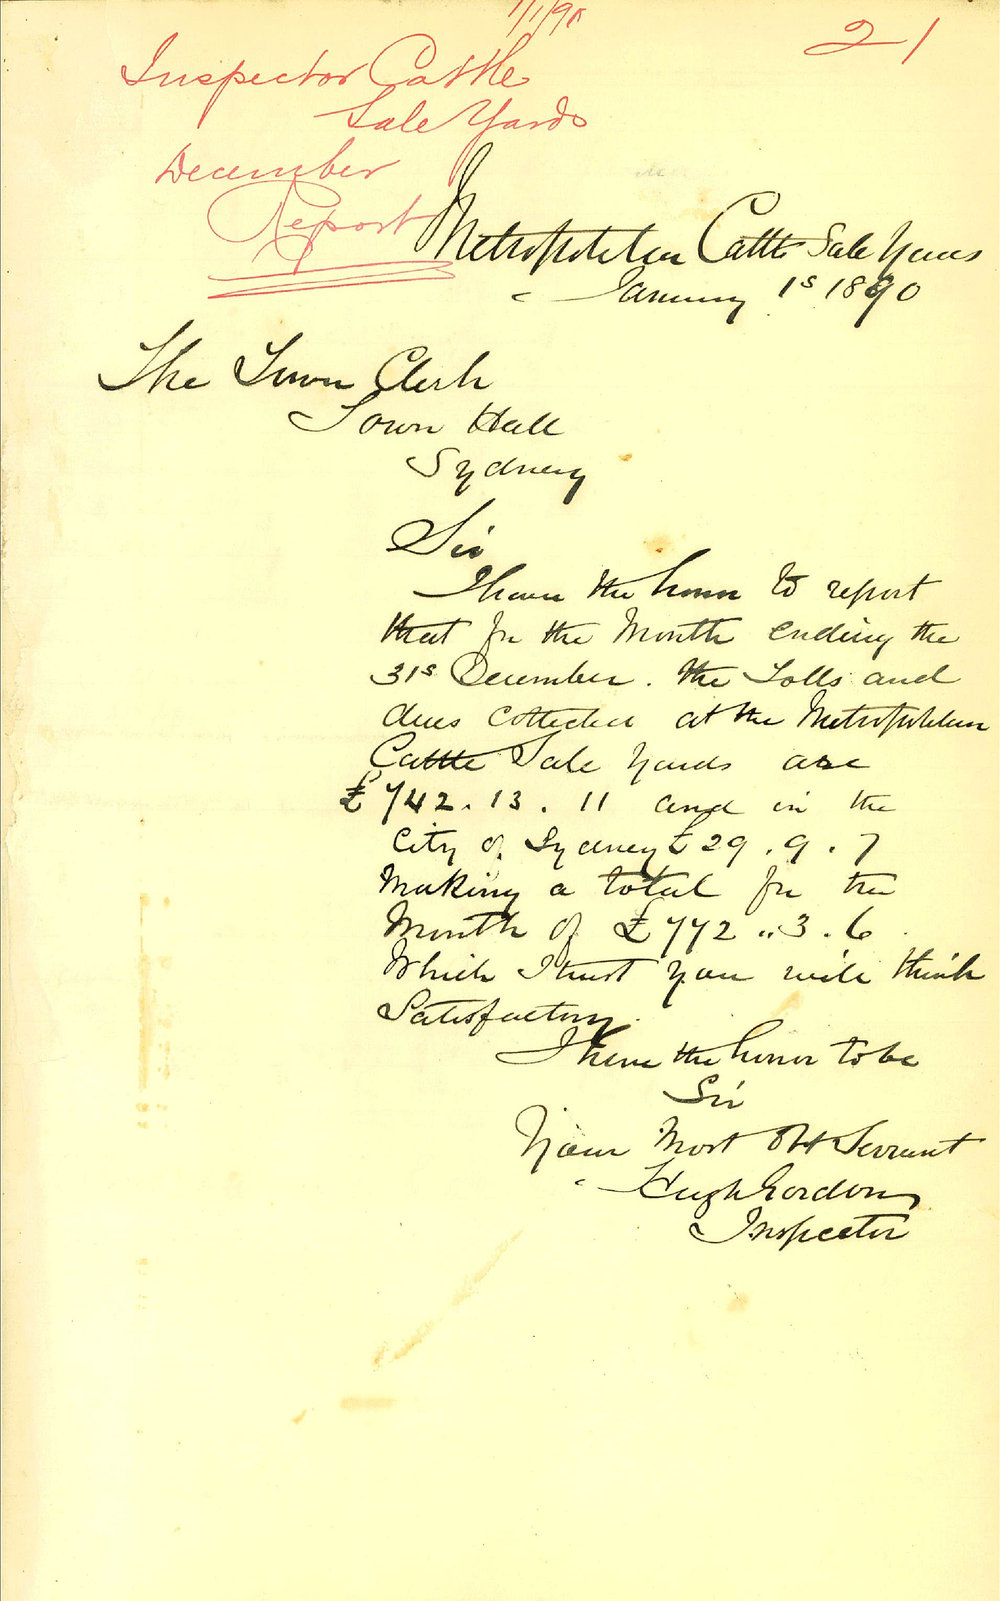 1/1/90
21
Inspector Cattle
Sale Yards
December
Report
Metropolitan Cattle Sale Yards
January 1s 1890
The Town Clerk
Town Hall
Sydney
Sir
I have the honor to report
that for the Month ending the
31s December. the Tolls and
dues collected at the Metropolitan
Cattle Sale Yards are
£742. 13. 11 and in the
City of Sydney £29. 9. 7
Making a total for the
Month of £772 .. 3. 6
Which I trust you will think
Satisfactory.
I have the honor to be
Sir
Your Most Obt Servant
Hugh Gordon
Inspector